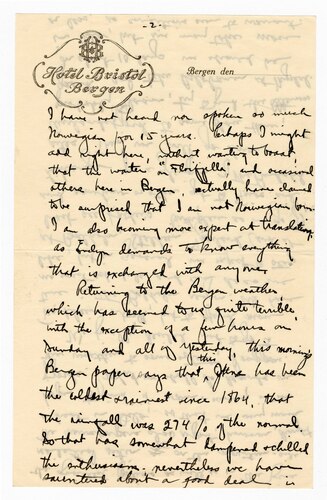 - 2 -
HB
Hotel Bristol
Bergen
Bergen den
I have not heard nor spoken so much
Norwegian for 15 years. Perhaps I might
add right here, without wanting to boast,
that the waiter in "Fløifjellet" and occasional
others here in Bergen, actually have claimed
to be surprised that I am not Norwegian born.
I am also becoming more expert at translating,
as Evelyn demands to know everything
that is exchanged with anyone.
Returning to the Bergen weather
which has seemed to us quite terrible
with the exception of a few hours on
Sunday and all of yesterday, this morning's
Bergen paper says that this June has been
the coldest & rainiest since 1864, that
the rainfall was 274 % of the normal.
So that has somewhat dampened & chilled
the enthusiasm, nevertheless we have
sauntered about a good deal